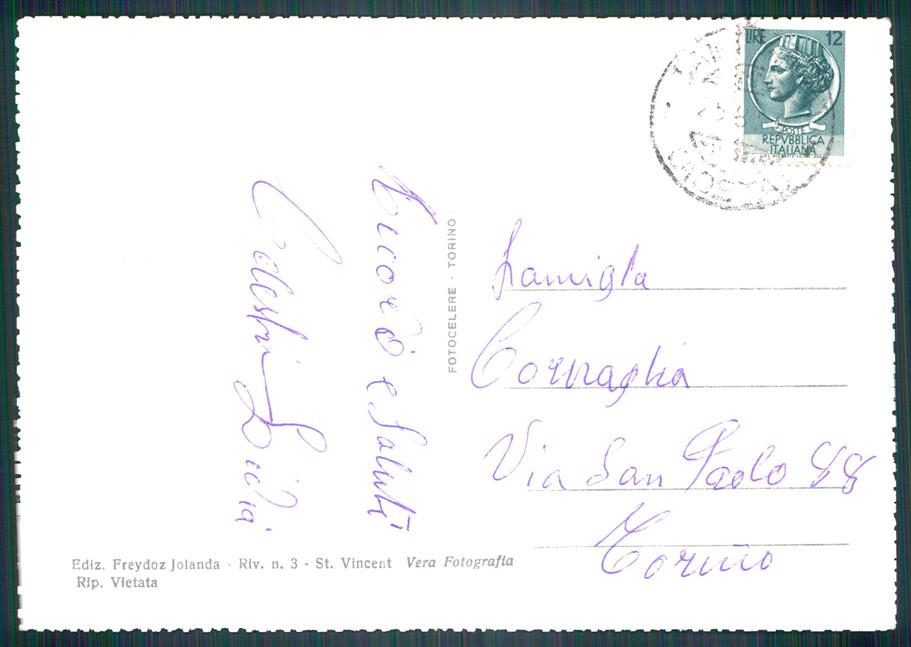 LIRE 12
POSTE
REPVBBLICA
ITALIANA
Ricordi e Saluti
Celestin Lidia
FOTOCELERE - TORINO
Famiglia
Cornaglia
Via San Paolo 88
Torino
Ediz. Freydoz Jolanda - Riv. n. 3 - St. Vincent Vera Fotografia
Rip. Vietata